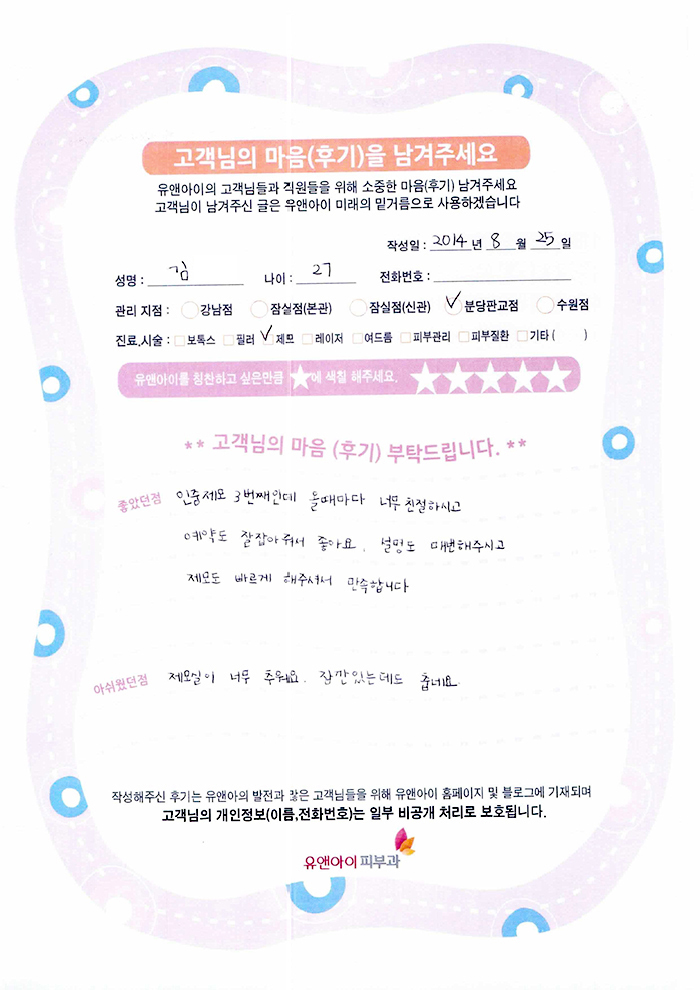 고객님의 마음(후기)을 남겨주세요
유앤아이의 고객님들과 직원들을 위해 소중한 마음(후기) 남겨주세요
고객님이 남겨주신 글은 유앤아이 미래의 밑거름으로 사용하겠습니다
작성일 : 2014 년 8 월 25 일
성명 : 김 나이 : 27 전화번호 :
관리 지점 : 강남점 잠실점(본관) 잠실점(신관) 분당판교점 수원점
진료,시술 : 보톡스 필러 제모 레이저 여드름 피부관리 피부질환 기타 ( )
유앤아이를 칭찬하고 싶은만큼 ★에 색칠 해주세요. ★★★★★
** 고객님의 마음 (후기) 부탁드립니다. **
좋았던점 인중제모 3번째인데 올때마다 너무 친절하시고
예약도 잘잡아줘서 좋아요, 설명도 매번해주시고
제모도 바르게 해주셔서 만족합니다
아쉬웠던점 제모실이 너무 추워요. 잠깐있는데도 춥네요.
작성해주신 후기는 유앤아의 발전과 많은 고객님들을 위해 유앤아이 홈페이지 및 블로그에 기재되며
고객님의 개인정보(이름,전화번호)는 일부 비공개 처리로 보호됩니다.
유앤아이피부과